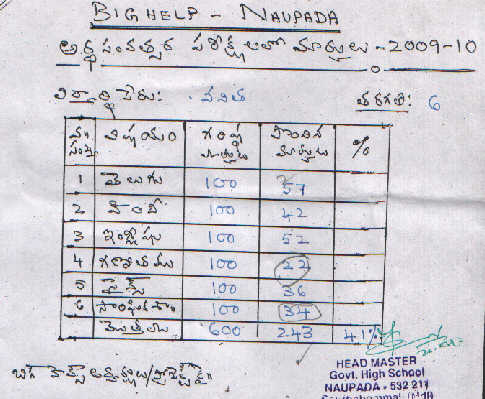 BIG HELP - NAUPADA
అర్ధ సంవత్సర పరీక్షలలో మార్కులు - 2009-10
విద్యార్థి పేరు: వనిత తరగతి: 6
వ. సంఖ్య విషయం గరిష్ట మార్కులు పొందిన మార్కులు %
1 తెలుగు 100 57
2 హిందీ 100 42
3 ఇంగ్లీషు 100 52
4 గణితము 100 22
5 సైన్స్ 100 36
6 సాంఘిక శా. 100 34
మొత్తము 600 243 41%
బిగ్ హెల్ప్
HEAD MASTER
Govt. High School
NAUPADA - 532 211